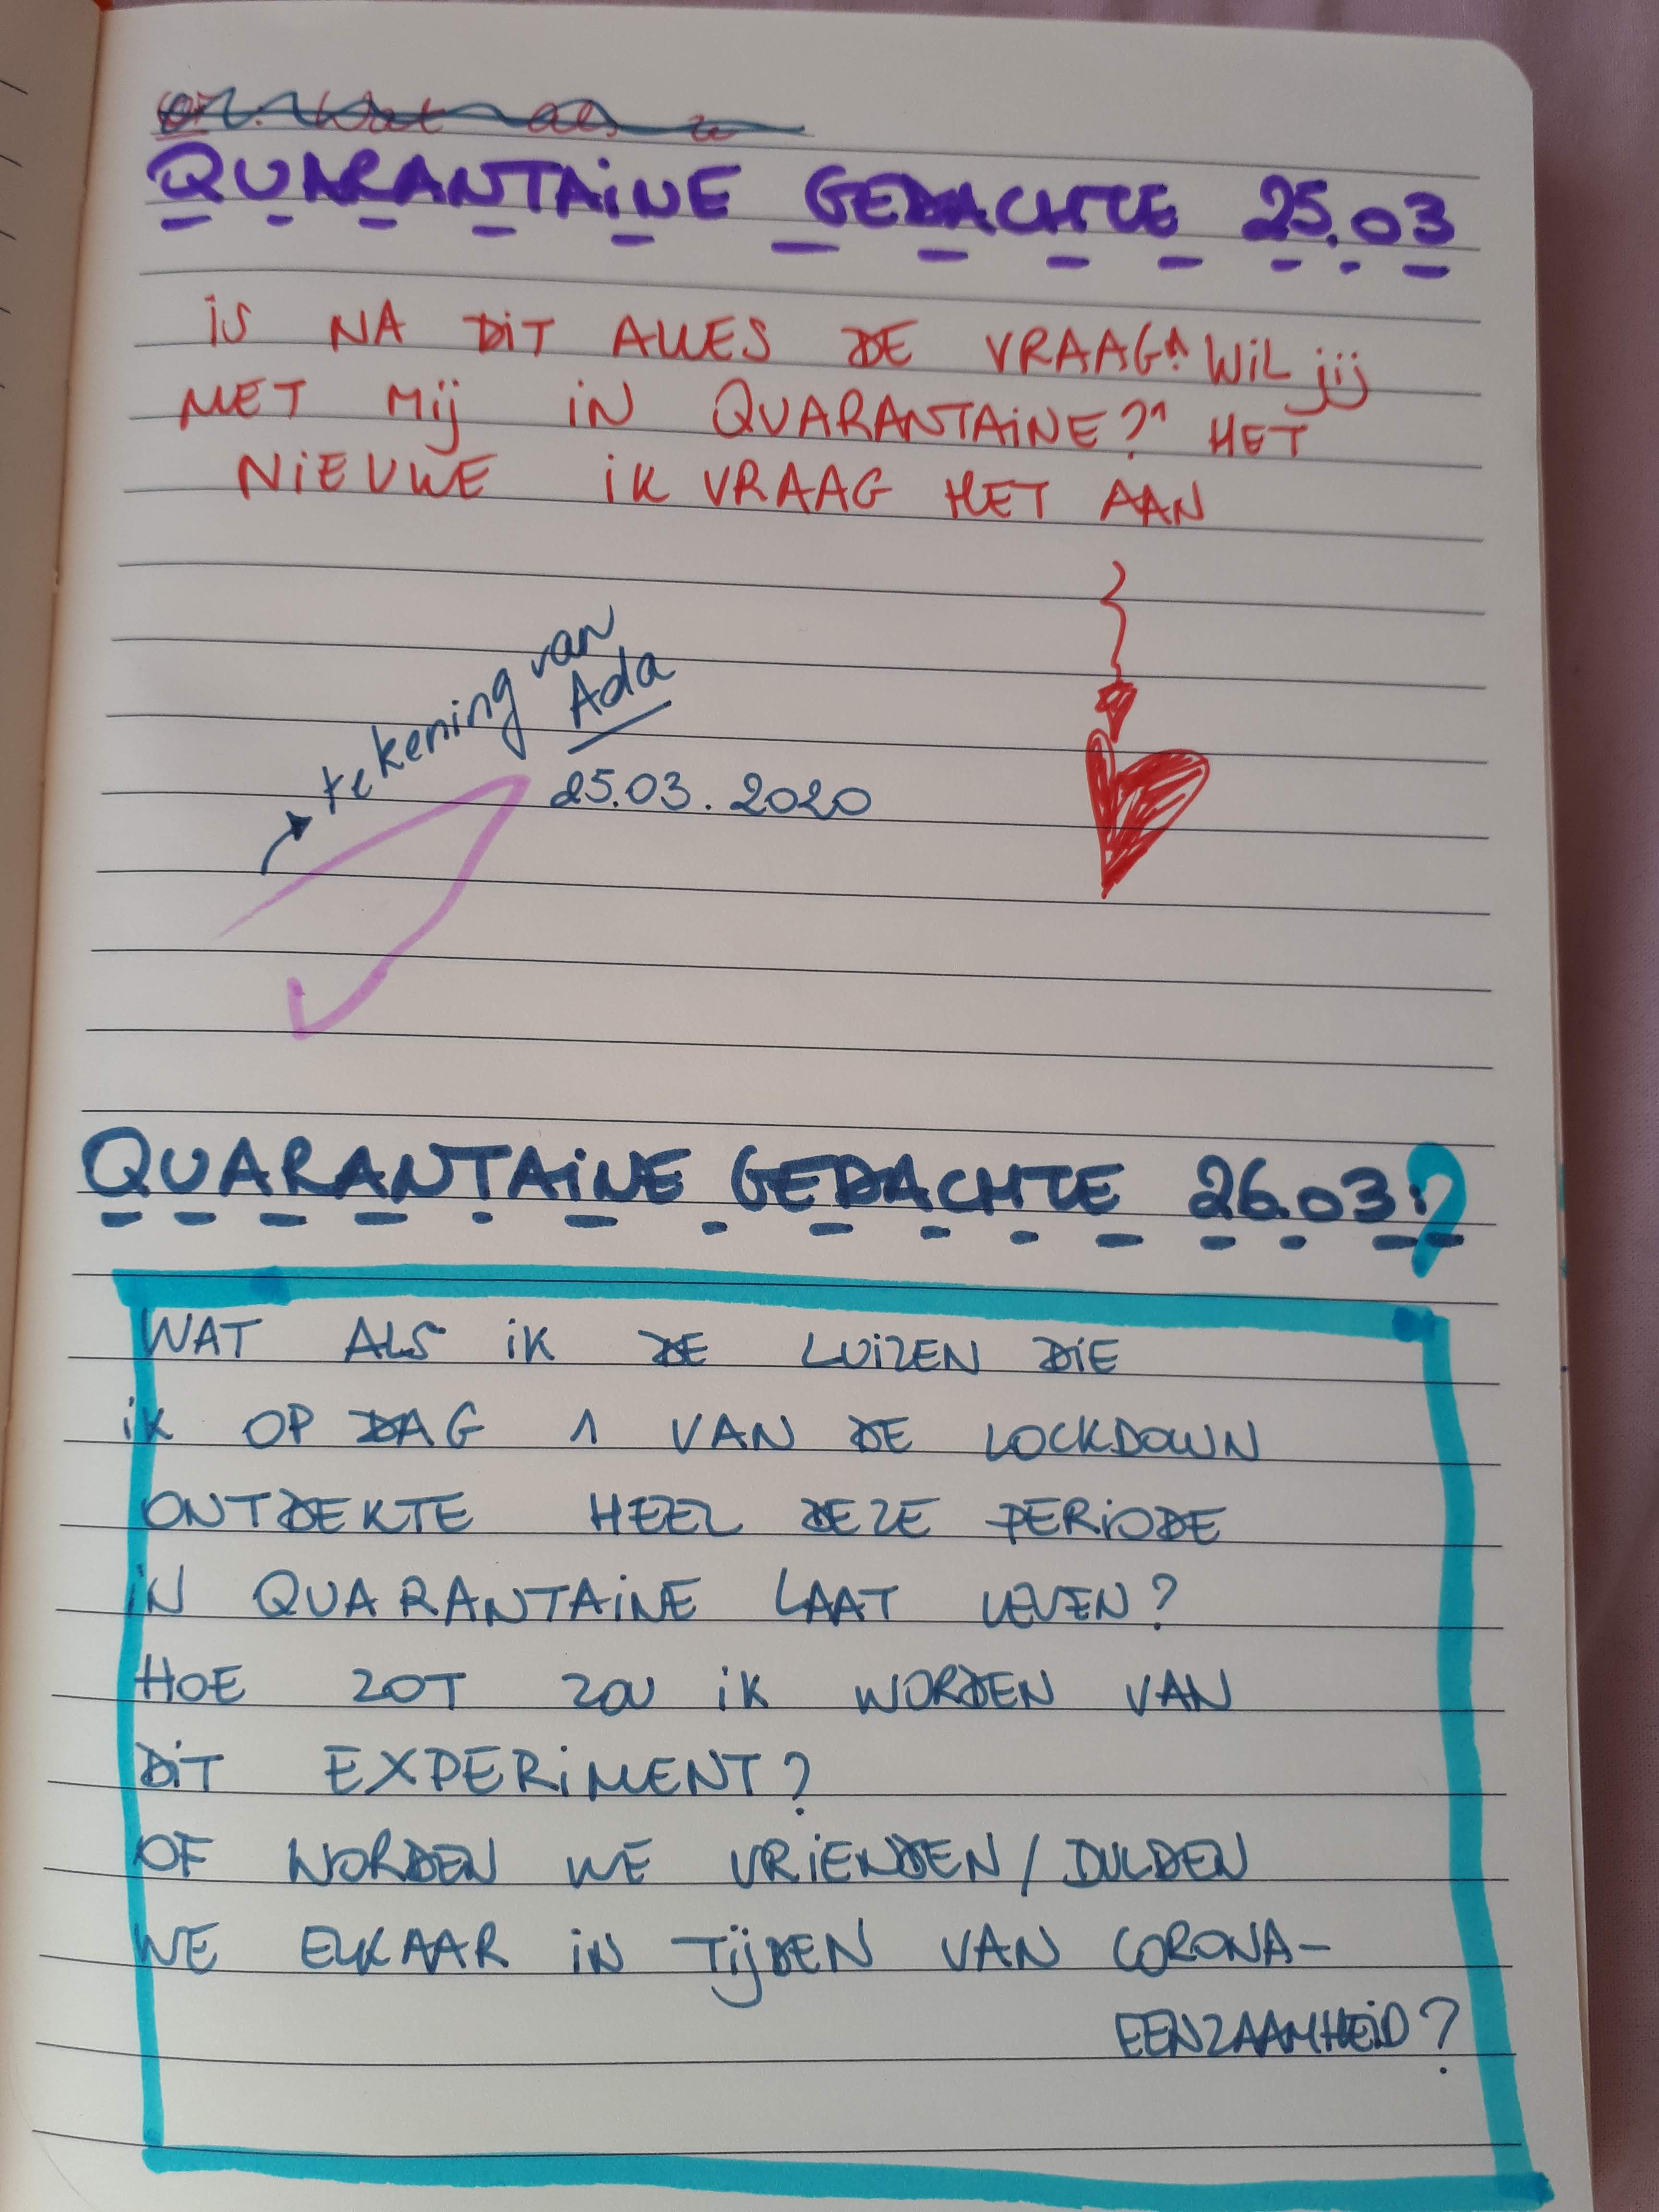 Wat als
QUARANTAINE GEDACHTE 25.03
IS NA DIT ALLES DE VRAAG "WIL jij
MET Mij IN QUARANTAINE?" HET
NIEUWE IK VRAAG HET AAN
tekening van
Ada
25.03.2020
QUARANTAINE GEDACHTE 26.03:
WAT ALS IK DE LUIZEN DIE
IK OP DAG 1 VAN DE LOCKDOWN
ONTDEKTE HEEL DEZE PERIODE
IN QUARANTAINE LAAT LEVEN?
HOE ZOT ZOU IK WORDEN VAN
DIT EXPERIMENT?
OF WORDEN WE VRIENDEN/DULDEN
WE ELKAAR IN TIJDEN VAN CORONA-
EENZAAMHEID?